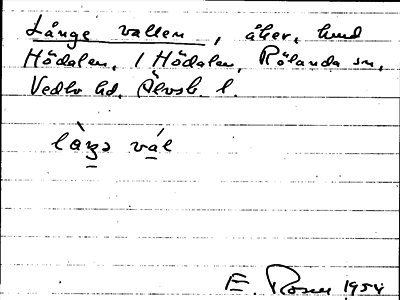 Långe vallen, åker, hmd
Hödalen, 1 Hödalen, Rölanda sn,
Vedbo hd. Älvsb. l.
làŋə vál
E. Rosen 1954